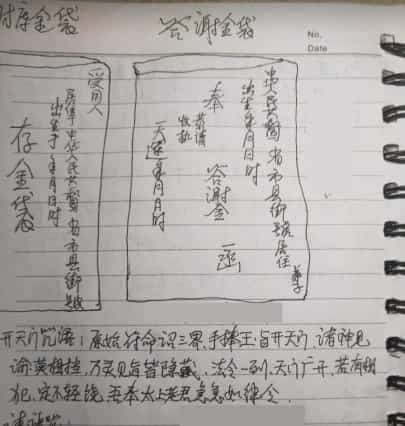 财库金袋
答谢金袋
No.
Date
受用人
居住中华人民共和国 省 市 县 街 号
出生于 年 月 日 时
存金袋
中华人民共和国 省 市 县 街 号 居住
出生 年 月 日 时
奉
答谢金 一函
恭请
收执
天运 年 月 日 时
开天门咒语：原始符命 三界 手捧王旨开天门 诸神见
万灵见旨皆隐藏，法令一到，天门广开，若有
犯，定不轻饶，吾奉太上老君急急如律令。